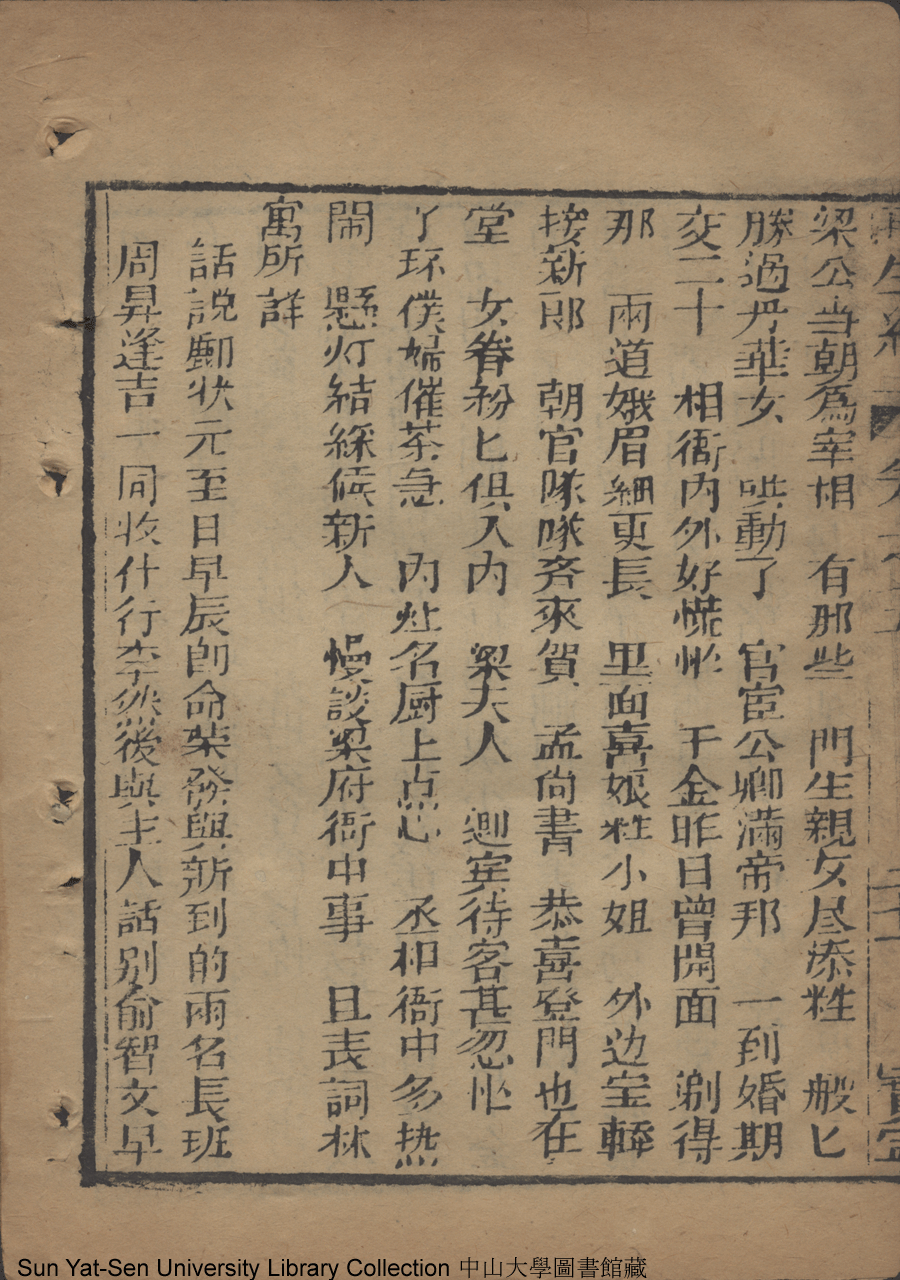 再生緣 卷之五 二十 寧
梁公当朝爲宰相 有那些 門生親女尽添粧 般匕
勝過丹華女 哄動了 官宦公卿滿帝邦 一到婚期
交二十 相衙内外好慌忙 千金昨日曾開面 剃得
那 兩道娥眉細更長 里面喜娘粧小姐 外边宝轎
接新郎 朝官隊隊斉來賀 孟尚書 恭喜登門也在
堂 女眷粉匕俱入内 梁夫人 迎宾待客甚忽忙
了环僕婦催茶急 内灶名厨上点心 丞相衙中多热
閙 懸灯結綵候新人 慢談梁府衙中事 且表詞林
寓所詳
話說勳状元至日早辰即命荣發與新到的兩名長班
周昇逢吉一同收什行李然後與主人話别俞智文早
Sun Yat-Sen University Library Collection 中山大學圖書館藏